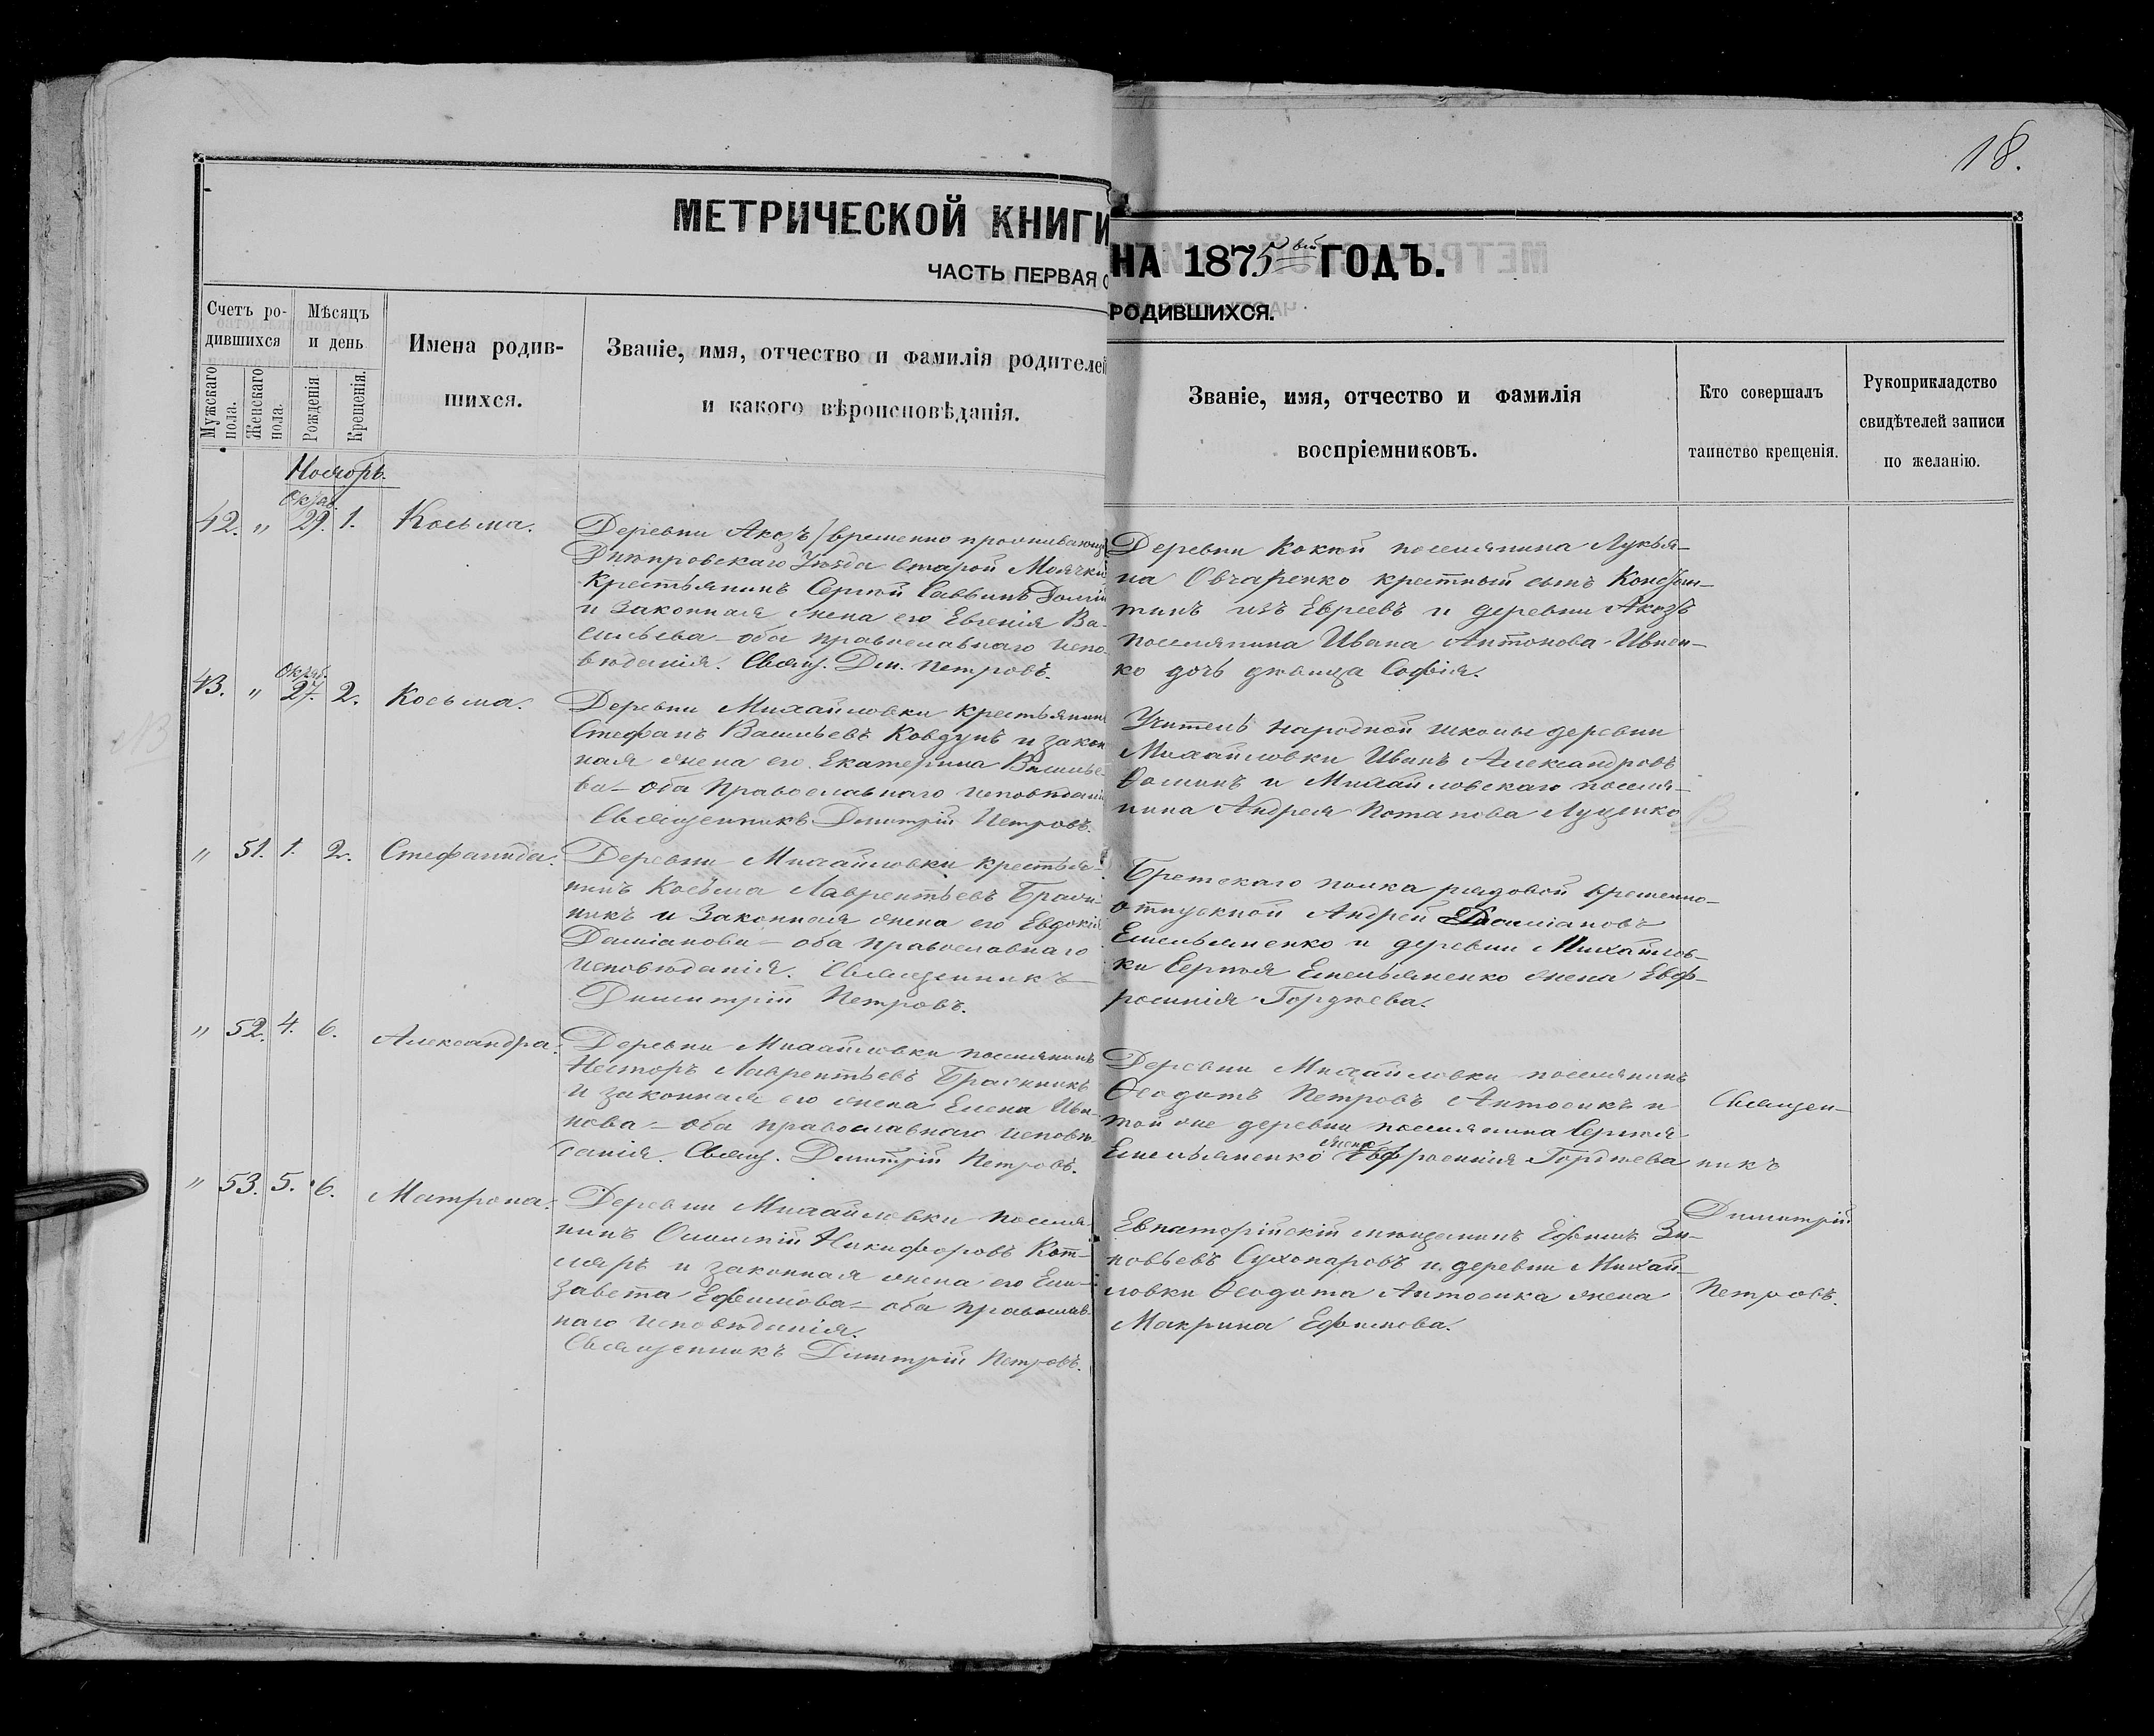 18.
МЕТРИЧЕСКОЙ КНИГИ
НА 1875ый ГОДЪ.
ЧАСТЬ ПЕРВАЯ О
РОДИВШИХСЯ.
Счетъ ро-
дившихся
Мужскаго пола.
Женскаго пола.
Мѣсяцъ
и день
Рожденія
Крещенія.
Имена родив-
шихся.
Званіе, имя, отчество и фамилія родителей
и какого вѣроисповѣданія.
Званіе, имя, отчество и фамилія
воспріемниковъ.
Кто совершалъ
таинство крещенія.
Рукоприкладство
свидѣтелей записи
по желанію.
Ноябрь.
Октяб.
42. " 29. 1. Косьма.
Деревни Акозъ /временно проживающ
Днѣпровскаго Уѣзда Старой Маячки
Крестьянинъ Сергѣй Саввинъ
и Законная жена его Евгенія Ва-
сильева – оба православнаго испо-
вѣданія. Свящ. Дм. Петровъ.
Деревни Кокей поселянина Лукья-
на Овчаренко крестный сынъ Констан-
тинъ изъ Евреевъ и деревни Акозъ
поселянина Ивана Антонова Ивнен-
ко дочь дѣвица Софія.
Октяб.
43. " 27. 2. Косьма.
Деревни Михайловки крестьянинъ
Стефанъ Васильевъ Ковдунъ и закон
ная жена его Екатерина Василье-
ва – оба Православнаго исповѣдані
Священникъ Димитрій Петровъ.
Учитель народной школы деревни
Михайловки Иванъ Александровъ
Ѳоминъ и Михайловскаго поселя-
нина Андрея Потапова Луценко
" 51. 1. 2. Стефанида.
Деревни Михайловки крестья-
нинъ Косьма Лаврентьевъ Браж-
никъ и Законная жена его Евдокія
Даміанова – оба православнаго
исповѣданія. Священникъ
Димитрій Петровъ.
Брестскаго полка рядовой временно-
отпускной Андрей Даміановъ
Емельяненко и деревни Михайлов-
ки Сергѣя Емельяненко жена Евф-
росинія Гордѣева.
" 52. 4. 6. Александра.
Деревни Михайловки поселянинъ
Несторъ Лаврентьевъ Бражникъ
и законная его жена Елена Ива-
нова – оба православнаго исповѣ-
данія. Свящ. Димитрій Петровъ.
Деревни Михайловки поселянинъ
Ѳеодотъ Петровъ Антосикъ и
той же деревни поселянина Сергѣя
Емельяненко жена Евфросинія Гордѣева
" 53. 5. 6. Матрона.
Деревни Михайловки поселя-
нинъ Никифоровъ Кот-
ляръ и законная жена его Ели-
завета Ефимова – оба православ-
наго исповѣданія.
Священникъ Димитрій Петровъ.
Евпаторійскій мѣщанинъ Ефимъ Зи-
новьевъ Сухопаровъ и деревни Михай-
ловки Ѳеодота Антосика жена
Макрина Ефимова.
Священ-
никъ
Димитрій
Петровъ.